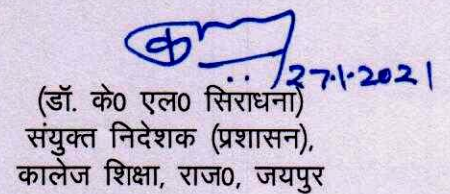 27.1.2021
(डॉ. के0 एल0 सिराधना)
संयुक्त निदेशक (प्रशासन),
कालेज शिक्षा, राज0, जयपुर